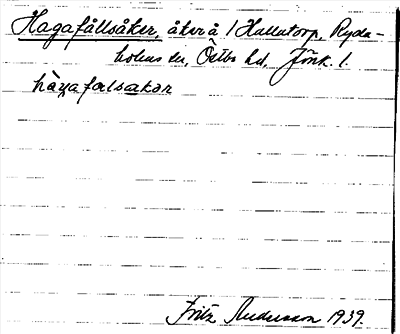 Hagafållsåker, åker å 1 Hallatorp, Ryda-
holms sn, Östbo hd, Jönk. l.
hàgafalsakər
Fritz Andersson 1939.